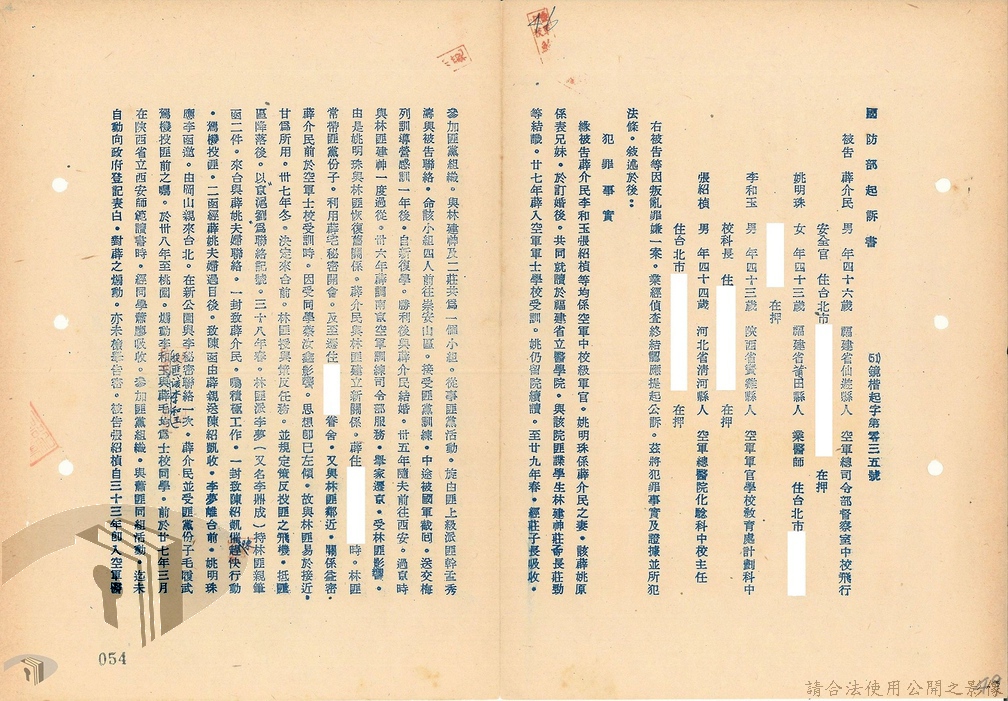 國防部起訴書
(51)鏡楷起字第零三五號
被告 薛介民 男 年四十六歲 福建省仙遊縣人 空軍總司令部督察室中校飛行
安全官 住台北市 在押
姚明珠 女 年四十三歲 福建省莆田縣人 業醫師 住台北市
在押
李和玉 男 年四十三歲 陝西省寶雞縣人 空軍軍官學校教育處計劃科中
校科長 住 在押
張紹楨 男 年四十四歲 河北省清河縣人 空軍總醫院化驗科中校主任
住台北市 在押
右被告等因叛亂罪嫌一案。業經偵查終結認應提起公訴。茲將犯罪事實及證據並所犯
法條。敘述於後:
犯罪事實
緣被告薛介民李和玉張紹楨等均係空軍中校級軍官。姚明珠係薛介民之妻。該薛姚原
係表兄妹。於訂婚後。共同就讀於福建省立醫學院。與該院匪諜學生林建神莊子長莊勁
等結識。廿七年薛入空軍軍士學校受訓。姚仍留院續讀。至廿九年春。經莊子長吸收。
參加匪黨組織。與林建神及二莊共為一個小組。從事匪黨活動。旋由匪上級派匪幹孟秀
濤與被告聯絡。命該小組四人前往崇安山區。接受匪黨訓練。中途被國軍截回。送交梅
列訓導營感訓一年後。自新復學。勝利後與薛介民結婚。卅五年隨夫前往西安。過京時
與林匪建神一度過從。卅六年薛調南京空軍訓練司令部服務。舉家遷京。受林匪影響。
由是姚明珠與林匪恢復舊關係。薛介民與林匪建立新關係。薛住 時。林匪
常帶匪黨份子。利用薛宅秘密開會。及至遷住 眷舍。又與林匪鄰近。關係益密。
薛介民前於空軍士校受訓時。因受同學秦汝鑫影響。思想即已左傾。故與林匪易於接近。
甘為所用。卅七年冬。決定來台前。林匪授與策反任務。並規定策反投匪之飛機。抵匪
區降落後。以京滬劉為聯絡記號。三十八年春。林匪派李夢(又名李鼎成)持林匪親筆
函二件。來台與薛姚夫婦聯絡。一封致薛介民。囑積極工作。一封致陳紹凱催趕快行動
。駕機投匪。二函經薛姚夫婦過目後。致陳函由薛親送陳紹凱收。李夢離台前。姚明珠
應李函邀。由岡山親來台北。在新公園與李秘密聯絡一次。薛介民並受匪黨份子毛履武
駕機投匪前之囑。於卅八年至桃園。煽動李和玉。李和玉與薛毛均為士校同學。前於廿七年三月
在陝西省立西安師範讀書時。經同學蕭慶吸收。參加匪黨組織。與蕭匪同組活動。迄未
自動向政府登記表白。對薛之煽動。亦未檢舉告密。被告張紹楨自三十三年卽入空軍醫
054
請合法使用公開之影像